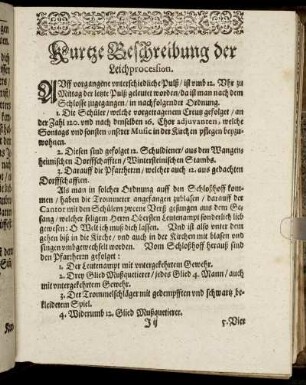 Kurtze Beschreibung der
Leichprocession.
AUff vorgangene unterschiedliche Pulß / ist umb 12. Uhr zu
Mittag der letzte Pulß geleutet worden / da ist man nach dem
Schlosse zugegangen / in nachfolgender Ordnung.
1. Die Schüler / welche vorgetragenem Creutz gefolget / an
der Zahl 120. und nach denselben 16. Chor adjuvanten, welche
Sontags und sonsten unsrer Music in der Kirchen pflegen beyzu-
wohnen.
2. Diesen sind gefolget 12. Schuldiener / aus den Wangen-
heimischen Dorffschafften / Wintersteinischen Stambs.
3. Darauff die Pfarrherrn / welcher auch 12. aus gedachten
Dorffschafften.
Als man in solcher Ordnung auff den Schloßhoff kom-
men / haben die Trommeter angefangen zublasen / darauff der
Cantor mit den Schülern zweene Vers gesungen aus dem Ge-
sang / welcher seligem Herrn Obersten Leutenampt sonderlich lieb
gewesen: O Welt ich muß dich lassen. Und ist also unter dem
gehen biß in die Kirche / und auch in der Kirchen mit blasen und
singen umbgewechselt worden. Vom Schloßhoff herauß sind
den Pfarrherrn gefolget:
1. Der Leutenampt mit untergekehrtem Gewehr.
2. Drey Glied Mußquetierer / jedes Glied 4. Mann / auch
mit untergekehrtem Gewehr.
3. Der Trommelschläger mit gedempfften und schwartz be-
kleidetem Spiel.
4. Widerumb 12. Glied Mußquetierer.
J ij
5. Vier